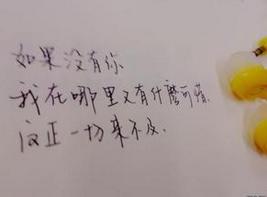 如果没有你
我在哪里又有什麽可惜.
反正一切来不及.